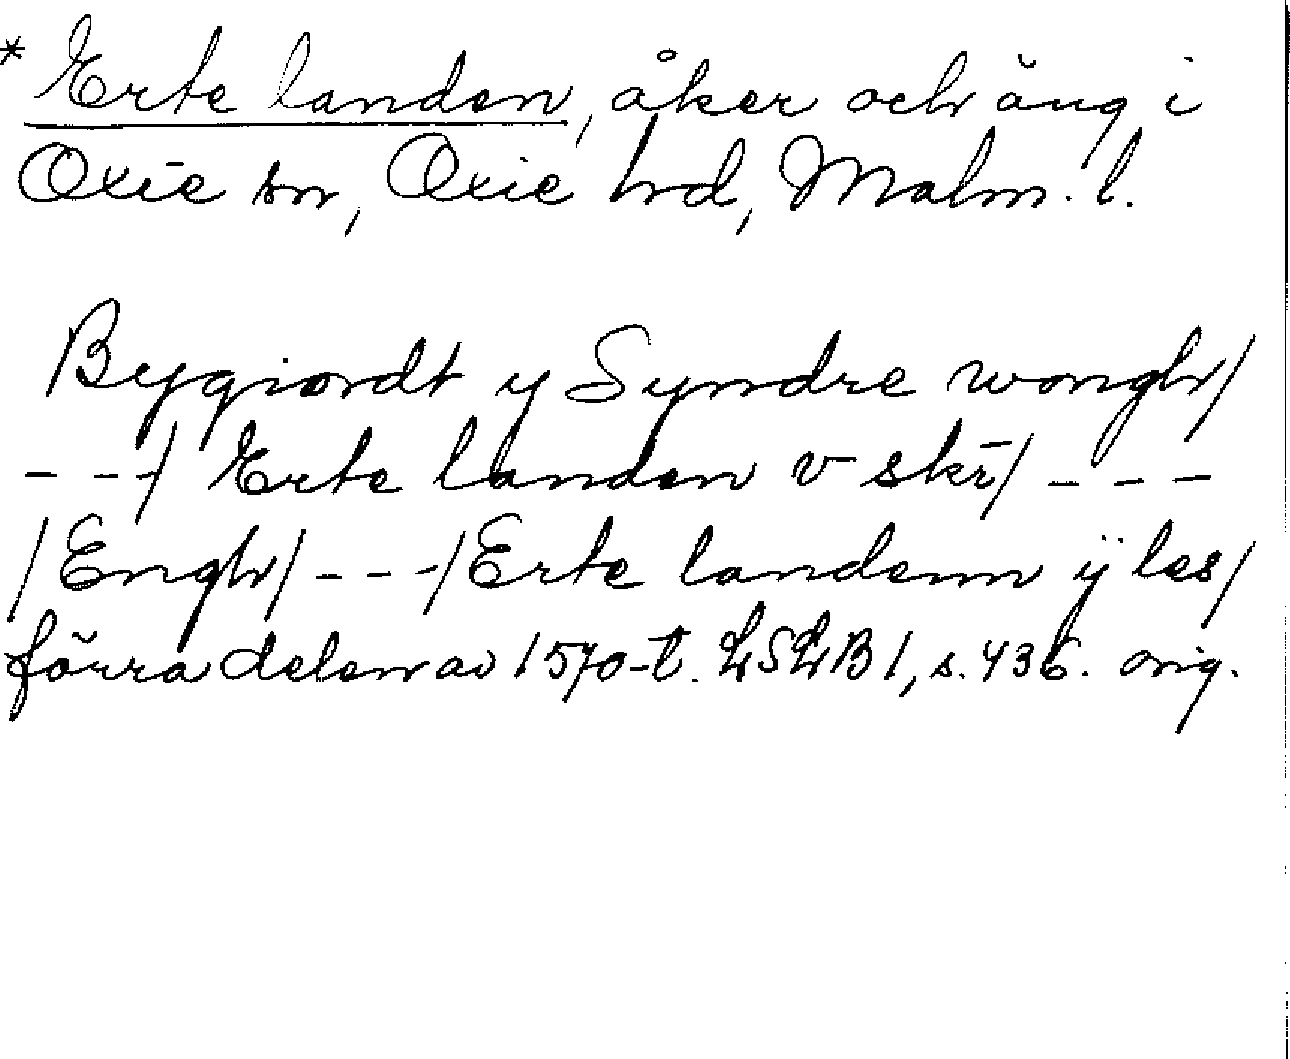 * Erte landen, åker och äng i
Oxie sn, Oxie hd, Malm. l.
Bygiordt y Syndre wongh/
- - -/ Erte landen v skr̄/ - - -
/Engh/ - - -/Erte landenn ÿ les/
förra delen av 1570-t. LSLB 1, s. 436. orig.